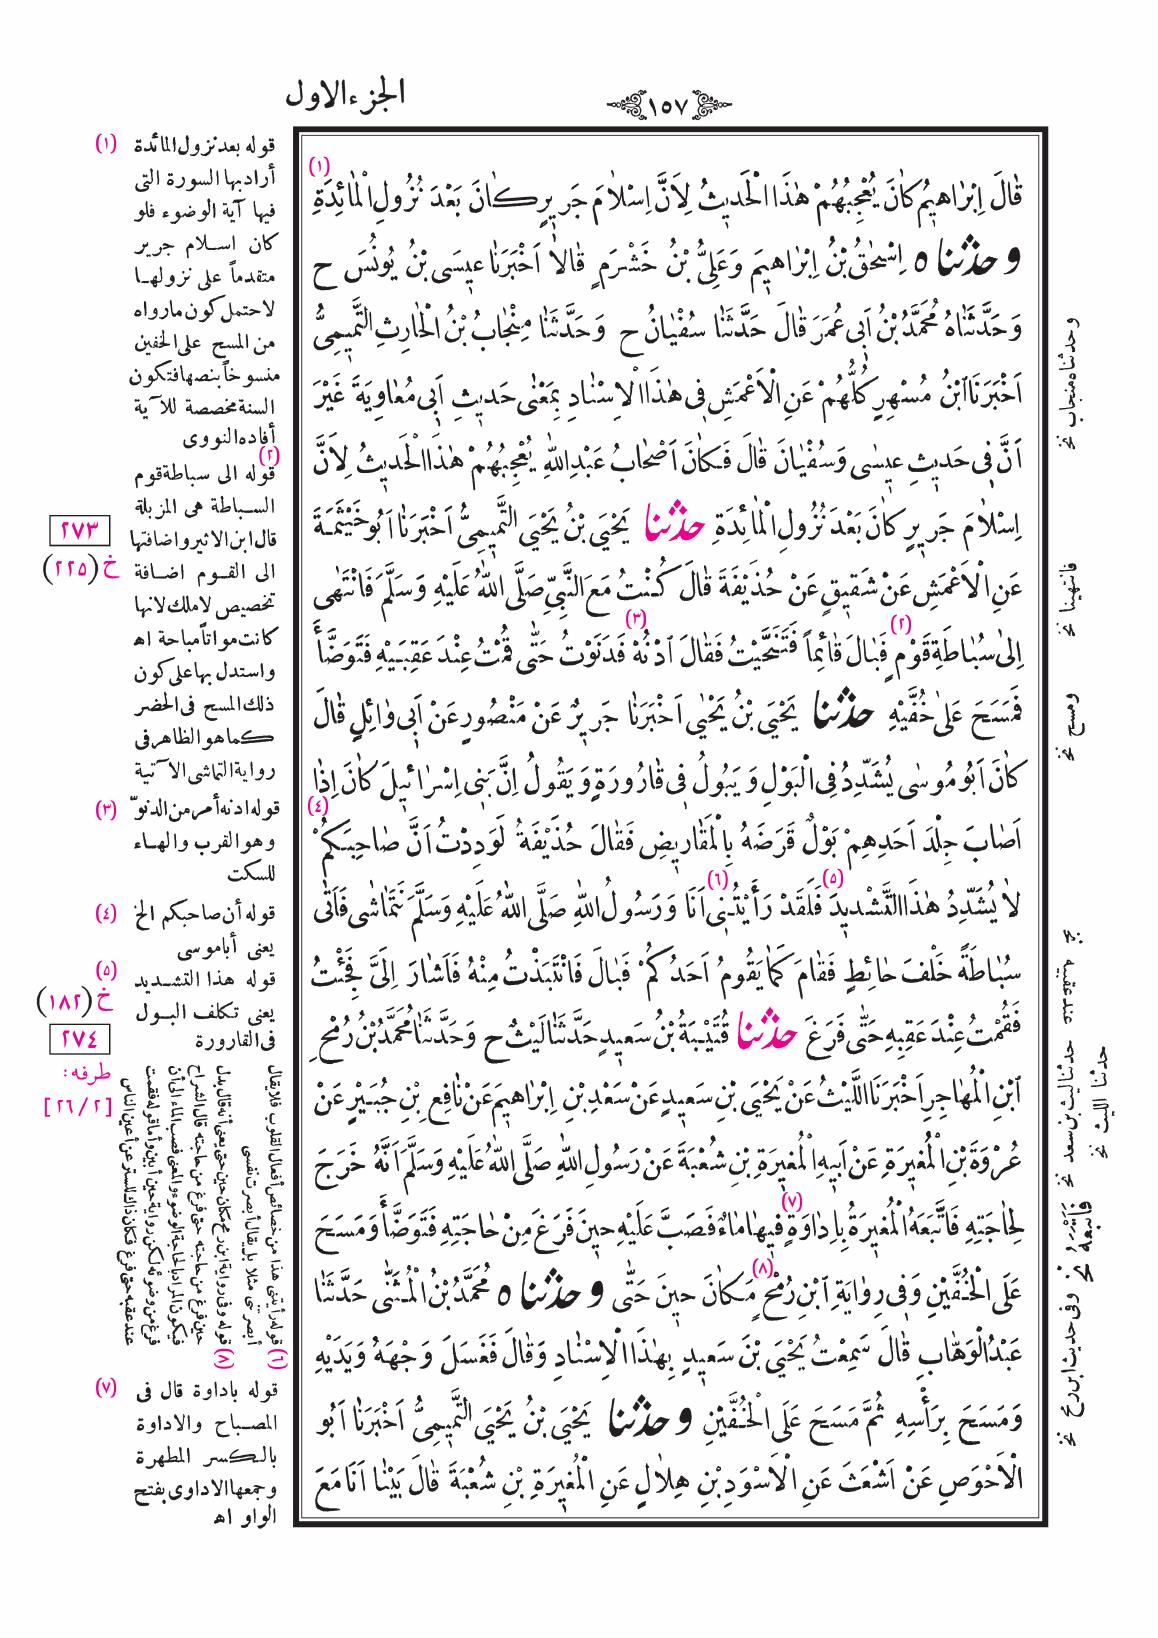 الجزء الاول
١٥٧
(١)
قَالَ اِبْرٰاهيمُ كٰانَ يُعْجِبُهُمْ هٰذَا الْحَديثُ لِاَنَّ اِسْلٰامَ جَريرٍ كٰانَ بَعْدَ نُزُولِ الْمٰائِدَةِ
و حدثنا ٥ اِسْحٰقُ بْنُ اِبْرٰاهيمَ وَعَلِىُّ بْنُ خَشْرَمٍ قٰالاٰ اَخْبَرَنٰا عيسَى بْنُ يُونُسَ ح
وَحَدَّثَنٰاهُ مُحَمَّدُ بْنُ اَبى عُمَرَ قٰالَ حَدَّثَنٰا سُفْيٰانُ ح وَحَدَّثَنٰا مِنْجٰابُ بْنُ الْحٰارِثِ التَّميمِىُّ
اَخْبَرَنَا ابْنُ مُسْهِرٍ كُلُّهُمْ عَنِ الْاَعْمَشِ فى هٰذَا الْاِسْنٰادِ بِمَعْنٰى حَديثِ اَبى مُعٰاوِيَةَ غَيْرَ
اَنَّ فى حَديثِ عيسٰى وَسُفْيٰانَ قٰالَ فَكٰانَ اَصْحٰابُ عَبْدِ اللّٰهِ يُعْجِبُهُمْ هٰذَا الْحَديثُ لِاَنَّ
اِسْلٰامَ جَريرٍ كٰانَ بَعْدَ نُزُولِ الْمٰائِدَةِ حدثنا يَحْيَى بْنُ يَحْيَى التَّميمِىُّ اَخْبَرَنٰا اَبُو خَيْثَمَةَ
عَنِ الْاَعْمَشِ عَنْ شَقيقٍ عَنْ حُذَيْفَةَ قٰالَ كُنْتُ مَعَ النَّبِىِّ صَلَّى اللّٰهُ عَلَيْهِ وَسَلَّمَ فَانْتَهٰى
(٢) (٣)
اِلٰى سُبٰاطَةِ قَوْمٍ فَبٰالَ قٰائِماً فَتَنَحَّيْتُ فَقٰالَ ادْنُهْ فَدَنَوْتُ حَتّٰى قُمْتُ عِنْدَ عَقِبَيْهِ فَتَوَضَّأَ
فَمَسَحَ عَلٰى خُفَّيْهِ حدثنا يَحْيَى بْنُ يَحْيٰى اَخْبَرَنٰا جَريرٌ عَنْ مَنْصُورٍ عَنْ اَبى وٰائِلٍ قٰالَ
كٰانَ اَبُو مُوسٰى يُشَدِّدُ فِى الْبَوْلِ وَيَبُولُ فى قٰارُورَةٍ وَيَقُولُ اِنَّ بَنى اِسْرٰائيلَ كٰانَ اِذٰا
(٤)
اَصٰابَ جِلْدَ اَحَدِهِمْ بَوْلٌ قَرَضَهُ بِالْمَقٰاريضِ فَقٰالَ حُذَيْفَةُ لَوَدِدْتُ اَنَّ صٰاحِبَكُمْ
(٥) (٦)
لاٰ يُشَدِّدُ هٰذَا التَّشْديدَ فَلَقَدْ رَأَيْتُنى اَنَا وَرَسُولُ اللّٰهِ صَلَّى اللّٰهُ عَلَيْهِ وَسَلَّمَ نَتَمٰاشٰى فَاَتٰى
سُبٰاطَةً خَلْفَ حٰائِطٍ فَقٰامَ كَمٰا يَقُومُ اَحَدُكُمْ فَبٰالَ فَانْتَبَذْتُ مِنْهُ فَاَشٰارَ اِلَىَّ فَجِئْتُ
فَقُمْتُ عِنْدَ عَقِبِهِ حَتّٰى فَرَغَ حدثنا قُتَيْبَةُ بْنُ سَعيدٍ حَدَّثَنٰا لَيْثٌ ح وَحَدَّثَنٰا مُحَمَّدُ بْنُ رُمْحِ
ابْنِ الْمُهٰاجِرِ اَخْبَرَنَا اللَّيْثُ عَنْ يَحْيَى بْنِ سَعيدٍ عَنْ سَعْدِ بْنِ اِبْرٰاهيمَ عَنْ نٰافِعِ بْنِ جُبَيْرٍ عَنْ
عُرْوَةَ بْنِ الْمُغيرَةِ عَنْ اَبيهِ الْمُغيرَةِ بْنِ شُعْبَةَ عَنْ رَسُولِ اللّٰهِ صَلَّى اللّٰهُ عَلَيْهِ وَسَلَّمَ اَنَّهُ خَرَجَ
(٧)
لِحٰاجَتِهِ فَاتَّبَعَهُ الْمُغيرَةُ بِاِدٰاوَةٍ فيهٰا مٰاءٌ فَصَبَّ عَلَيْهِ حينَ فَرَغَ مِنْ حٰاجَتِهِ فَتَوَضَّأَ وَمَسَحَ
(٨)
عَلَى الْخُفَّيْنِ وَفى رِوٰايَةِ ابْنِ رُمْحٍ مَكٰانَ حينَ حَتّٰى و حدثنا ٥ مُحَمَّدُ بْنُ الْمُثَنّٰى حَدَّثَنٰا
عَبْدُ الْوَهّٰابِ قٰالَ سَمِعْتُ يَحْيَى بْنَ سَعيدٍ بِهٰذَا الْاِسْنٰادِ وَقٰالَ فَغَسَلَ وَجْهَهُ وَيَدَيْهِ
وَمَسَحَ بِرَأْسِهِ ثُمَّ مَسَحَ عَلَى الْخُفَّيْنِ و حدثنا يَحْيَى بْنُ يَحْيَى التَّميمِىُّ اَخْبَرَنٰا اَبُو
الْاَحْوَصِ عَنْ اَشْعَثَ عَنِ الْاَسْوَدِ بْنِ هِلٰالٍ عَنِ الْمُغيرَةِ بْنِ شُعْبَةَ قٰالَ بَيْنٰا اَنَا مَعَ
وحدثناه منجاب نخ
فانتهينا نخ
ومسح نخ
عند عقبيه نخ
حدثنا ليث بن سعد نخ
حدثنا الليث نخ
فاتبعه نخ
وفى حديث ابن رمح نخ
(١) قوله بعد نزول المائدة
أراد بها السورة التى
فيها آية الوضوء فلو
كان اسلام جرير
متقدماً على نزولها
لاحتمل كون مارواه
من المسح على الخفين
منسوخاً بنصها فتكون
السنة مخصصة للآية
أفاده النووى
(٢)
قوله الى سباطة قوم
السباطة هى المزبلة
قال ابن الاثير واضافتها
الى القوم اضافة
تخصيص لا ملك لانها
كانت مواتاً مباحة اھ
واستدل بها على كون
ذلك المسح فى الحضر
كما هو الظاهر فى
رواية التماشى الآتية
(٣) قوله ادنه أمر من الدنوّ
وهو القرب والهاء
للسكت
(٤) قوله أن صاحبكم الخ
يعنى أبا موسى
(٥) قوله هذا التشديد
يعنى تكلف البول
فى القارورة
(٦) قوله رأيتنى هذا من خصائص أفعال القلوب فلا يقال
أبصرتنى مثلا بل يقال أبصرت نفسى
(٨) قوله وفى رواية ابن رمح مكان حين حتى يعنى أنه قال بدل
حين فرغ من حاجته حتى فرغ من حاجته قال الشراح
فيكون المراد بالحاجة الوضوء والمعنى فصب الماء الى أن
فرغ من وضوئه لكن رواية حين أبين وأما قوله فقمت
عند عقبه حتى فرغ فكان ذلك للستر عن أعين الناس
(٧) قوله باداوة قال فى
المصباح والاداوة
بالكسر المطهرة
وجمعها الاداوى بفتح
الواو اھ
٢٧٣
خ (٢٢٥)
خ (١٨٢)
٢٧٤
طرفه :
[٢٦/٢]